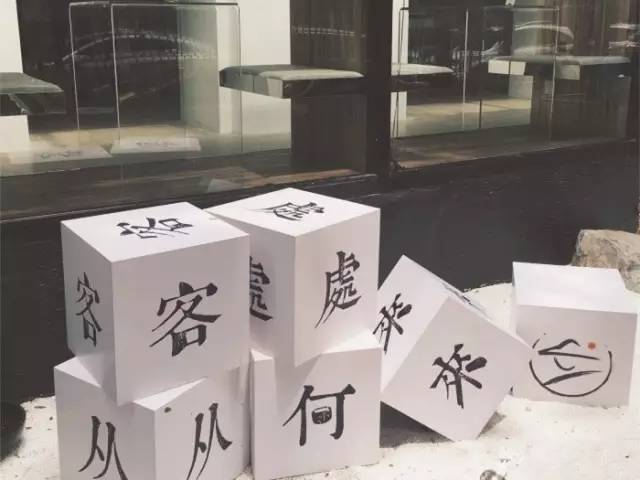 客 處
客 客 處 處 來 來
从 从 何